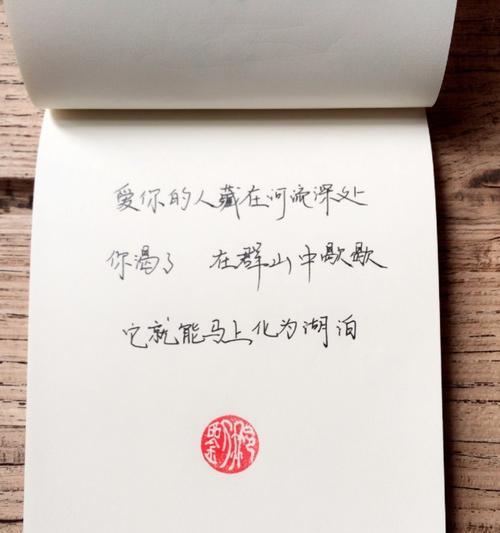 爱你的人藏在河流深处
你渴了 在群山中歇歇
它就能马上化为湖泊